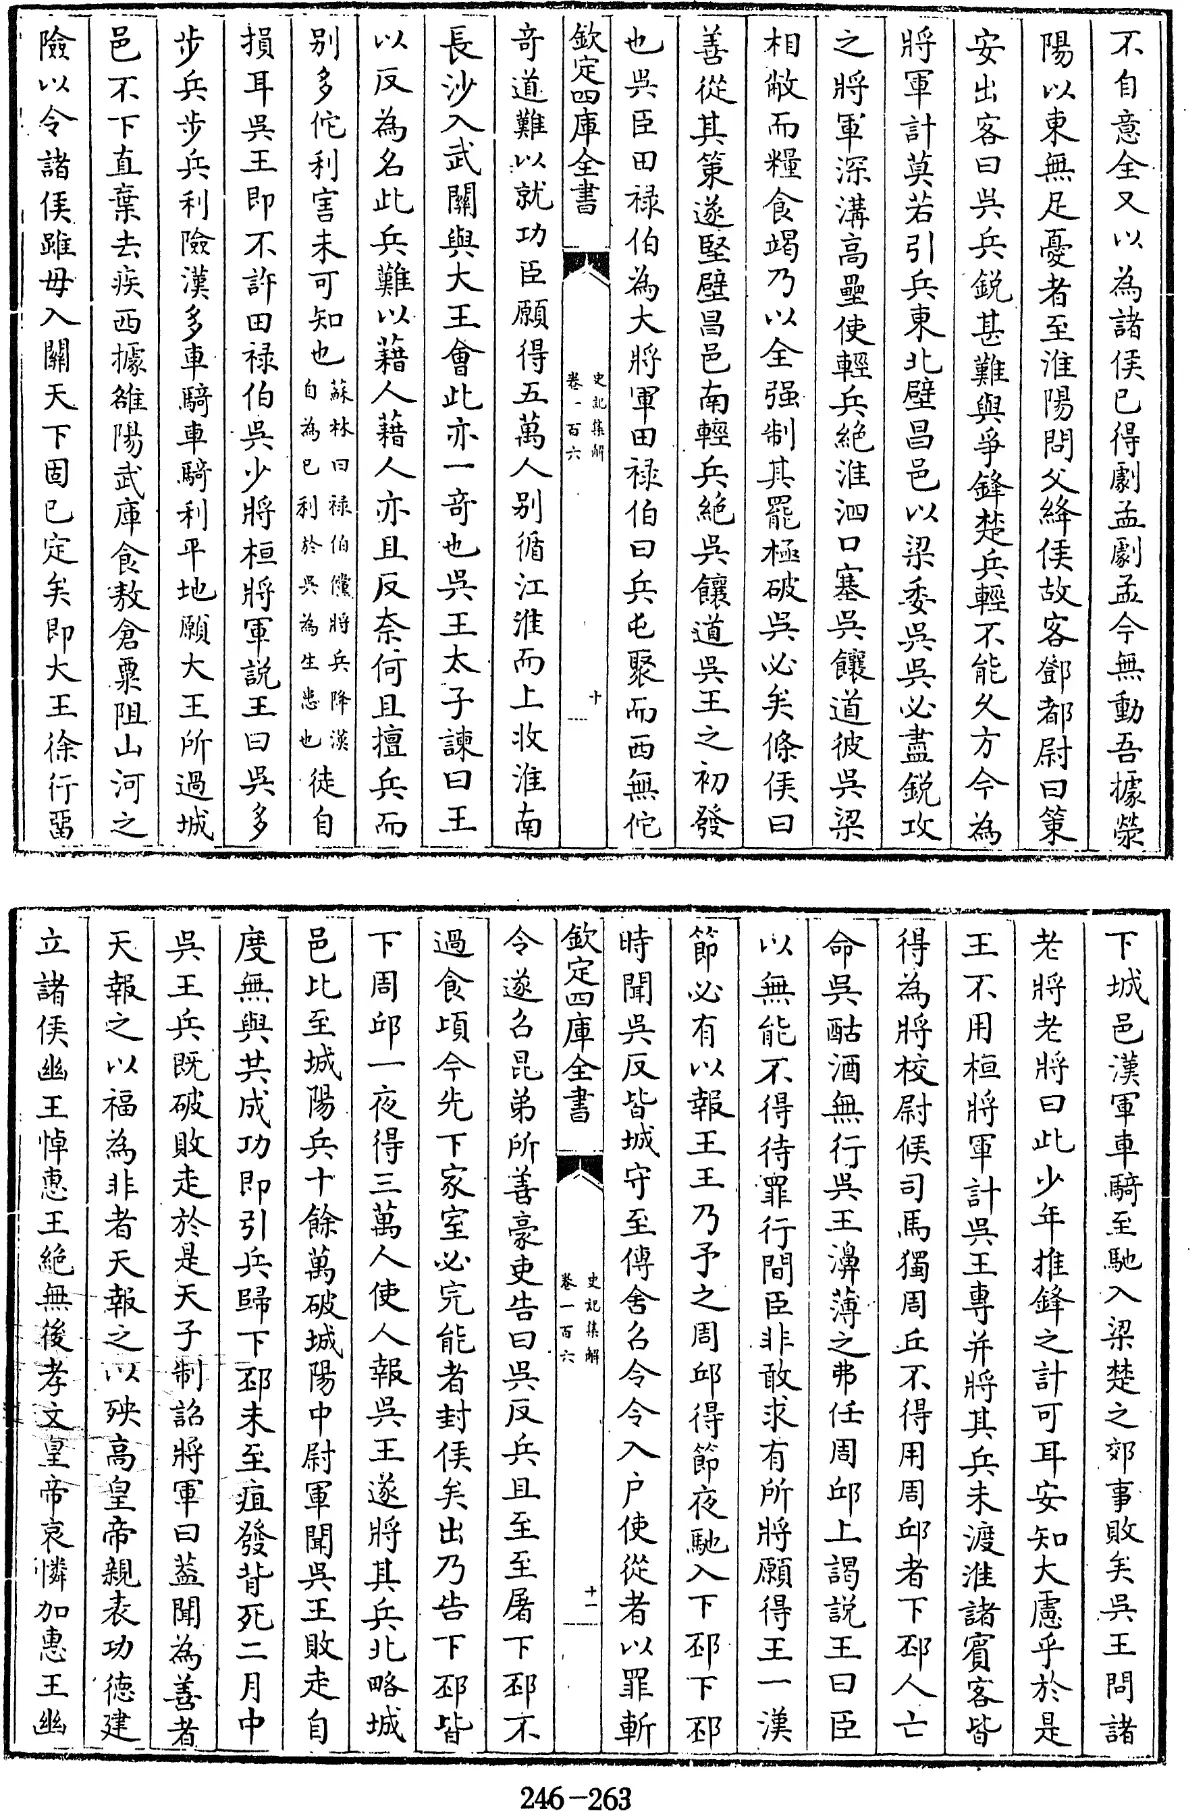 不自意全又以為諸侯已得劇孟劇孟今無動吾據滎
陽以東無足憂者至淮陽問父絳侯故客鄧都尉曰䇿
安出客曰吳兵鋭甚難與爭鋒楚兵輕不能久方今為
將軍計莫若引兵東北壁昌邑以梁委吳吳必盡鋭攻
之將軍深溝高壘使輕兵絶淮泗口塞吳饟道彼吳梁
相敝而糧食竭乃以全强制其罷極破吳必矣條侯曰
善從其策遂堅壁昌邑南輕兵絶吳饟道吳王之初發
也吳臣田禄伯為大將軍田禄伯曰兵屯聚而西無佗
欽定四庫全書
史記集解
卷一百六
十
竒道難以就功臣願得五萬人别循江淮而上收淮南
長沙入武關與大王會此亦一竒也吳王太子諫曰王
以反為名此兵難以藉人藉人亦且反奈何且擅兵而
别多佗利害未可知也蘇林曰禄伯儻將兵降漢自為已利於吳為生患也徒自
損耳吳王即不許田禄伯吳少將桓將軍説王曰吳多
步兵步兵利險漢多車騎車騎利平地願大王所過城
邑不下直棄去疾西據雒陽武庫食敖倉粟阻山河之
險以令諸侯雖毋入關天下固已定矣即大王徐行畱
下城邑漢軍車騎至馳入梁楚之郊事敗矣吳王問諸
老將老將曰此少年推鋒之計可耳安知大慮乎於是
王不用桓將軍計吳王專并將其兵未渡淮諸賔客皆
得為將校尉候司馬獨周丘不得用周邱者下邳人亡
命吳酤酒無行吳王濞薄之弗任周邱上謁説王曰臣
以無能不得待罪行間臣非敢求有所將願得王一漢
節必有以報王王乃予之周邱得節夜馳入下邳下邳
時聞吳反皆城守至傳舍召令令入户使從者以罪斬
欽定四庫全書
史記集解
卷一百六
十一
令遂召昆弟所善豪吏告曰吳反兵且至至屠下邳不
過食頃今先下家室必完能者封侯矣出乃告下邳皆
下周邱一夜得三萬人使人報吳王遂將其兵北略城
邑比至城陽兵十餘萬破城陽中尉軍聞吳王敗走自
度無與共成功即引兵歸下邳未至疽發背死二月中
吳王兵既破敗走於是天子制詔將軍曰蓋聞為善者
天報之以福為非者天報之以殃高皇帝親表功德建
立諸侯幽王悼惠王絶無後孝文皇帝哀憐加惠王幽
246-263